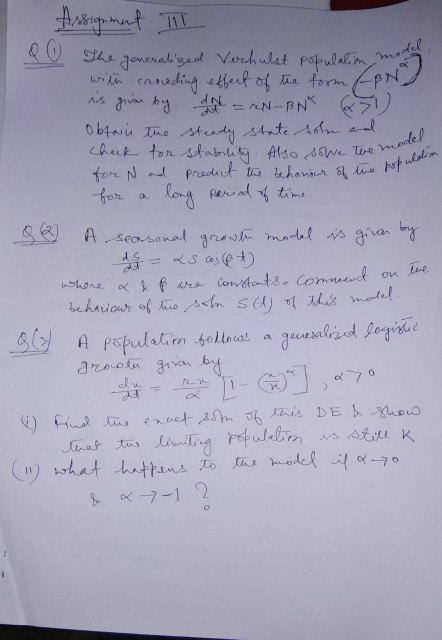 Assignment III
Q(1) The generalized Verhulst population model
with crowding effect of the form (-βN^α)
is given by dN/dt = rN - βN^α (α>1)
Obtain the steady state soln and
check for stability. Also solve the model
for N and predict the behaviour of the population
for a long period of time.
Q(2) A seasonal growth model is given by
ds/dt = α s cos(βt)
where α & β are constants. Comment on the
behaviour of the soln S(t) of this model.
Q(3) A population follows a generalized logistic
growth given by
dx/dt = rx/α [1 - (x/K)^α], α>0
(i) Find the exact soln of this DE & show
that the limiting population is still K
(ii) what happens to the model if α→0
& α→-1 ?